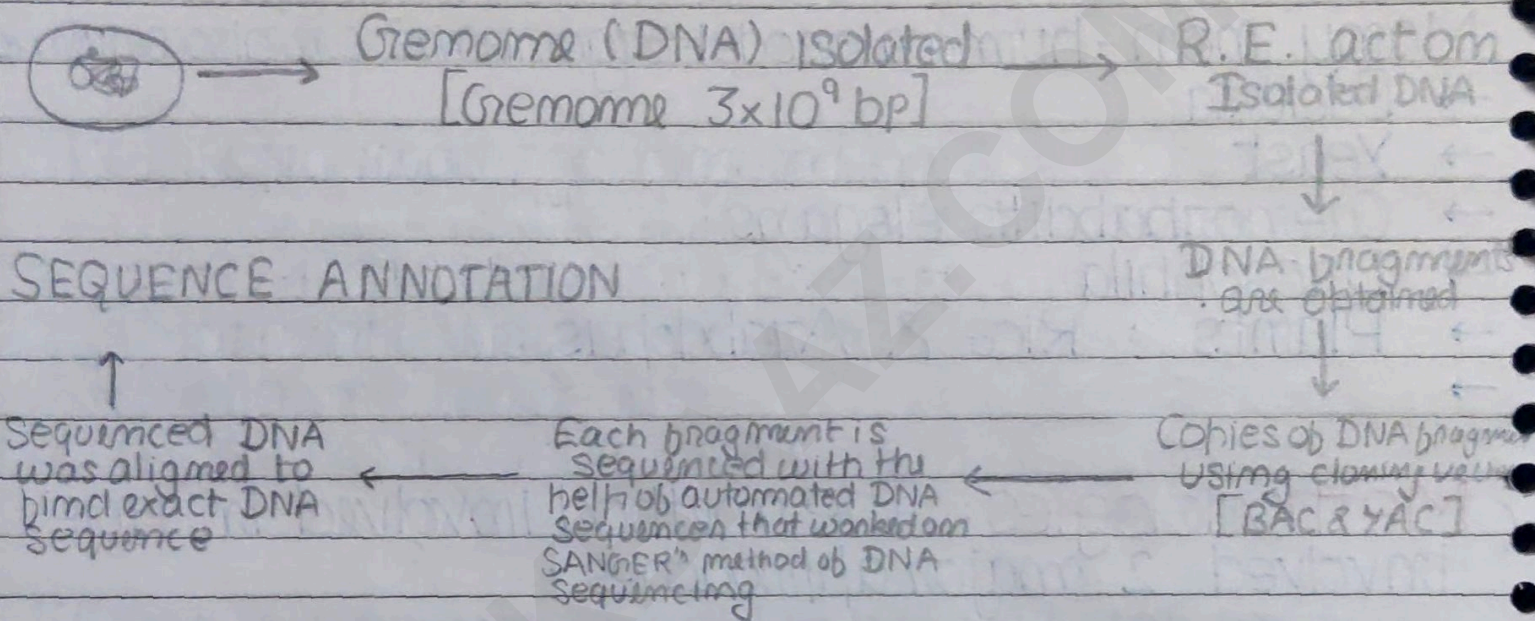 Genome (DNA) isolated
[Genome 3x10⁹ bp]
R.E. action
Isolated DNA
DNA fragments
are obtained
Copies of DNA fragme
using cloning
[BAC & YAC]
Each fragment is
sequenced with the
help of automated DNA
sequencer that worked on
SANGER's method of DNA
sequencing
Sequenced DNA
was aligned to
find exact DNA
sequence
SEQUENCE ANNOTATION